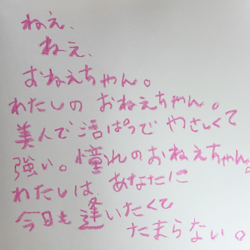 ねえ、
ねえ、
おねえちゃん。
わたしの おねえちゃん。
美人で活ぱつで やさしくて
強い。憧れのおねえちゃん。
わたしは、あなたに
今日も逢いたくて
たまらない。